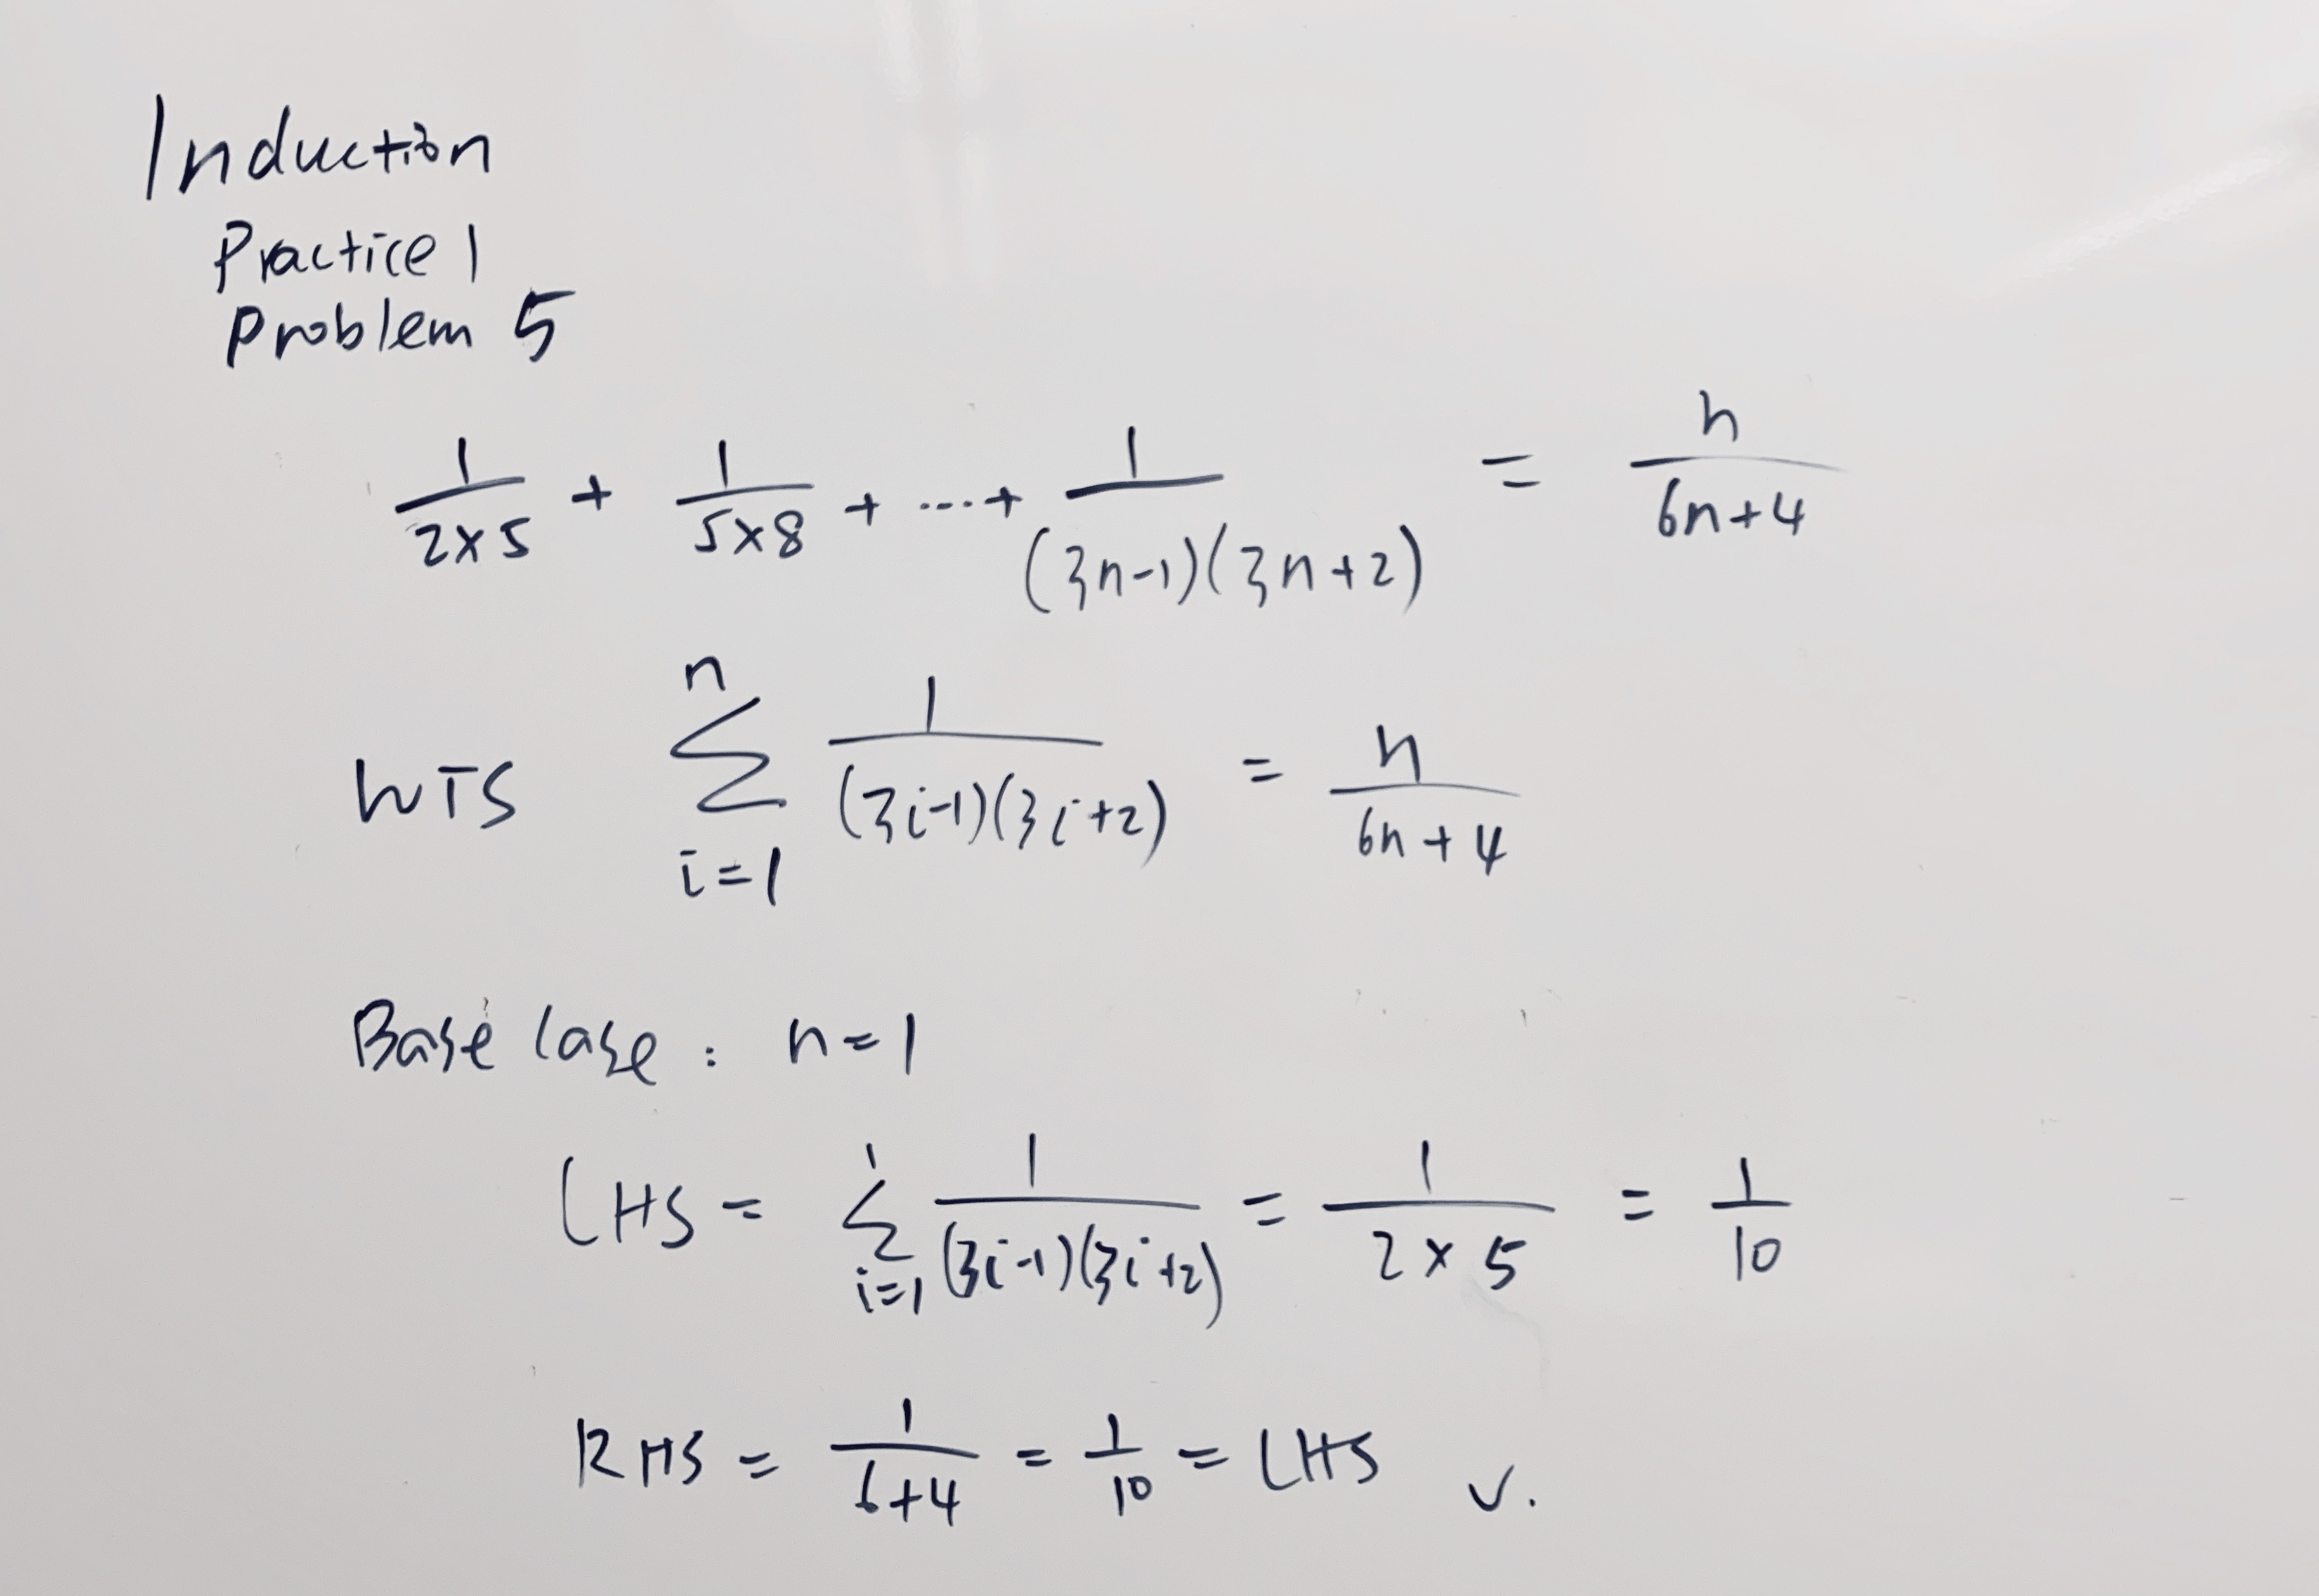 Induction
Practice 1
Problem 5
1/(2×5) + 1/(5×8) + ....+ 1/((3n-1)(3n+2)) = n/(6n+4)
WTS n∑i=1 1/((3i-1)(3i+2)) = n/(6n+4)
Base Case : n=1
LHS = 1∑i=1 1/((3i-1)(3i+2)) = 1/(2×5) = 1/10
RHS = 1/(6+4) = 1/10 = LHS ✓.